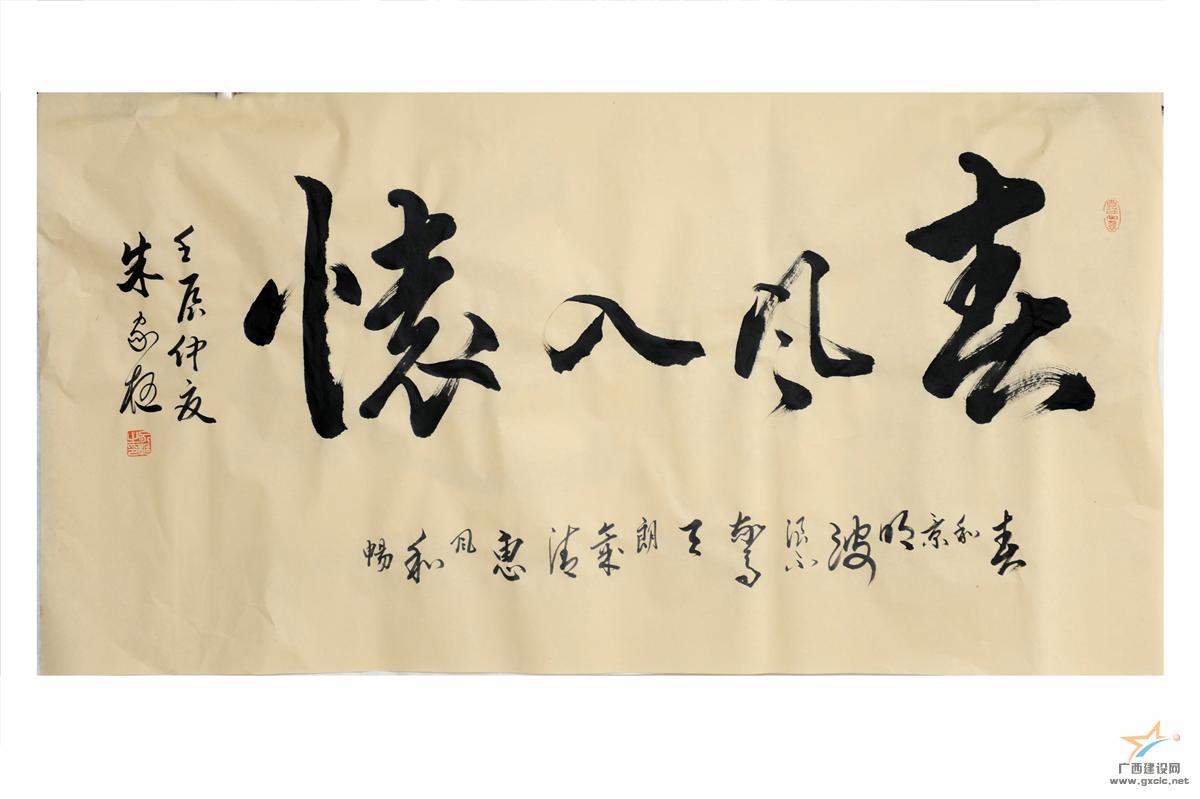 春风入懷
春和景明波浪不驚天朗氣清惠风和暢
壬辰仲夏
朱家
广西建设网
www.gxcic.net